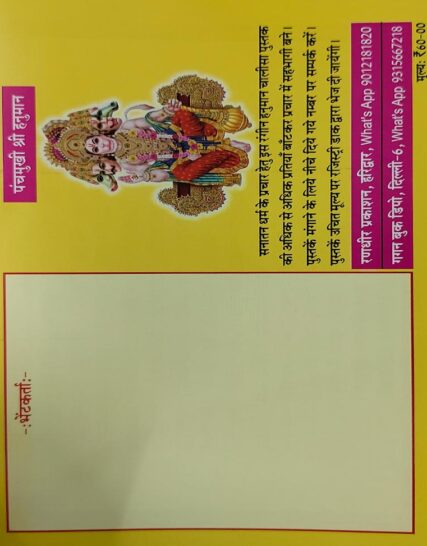 पंचमुखी श्री हनुमान
सनातन धर्म के प्रचार हेतु इस रंगीन हनुमान चालीसा पुस्तक
की अधिक से अधिक प्रतियाँ बाँटकर प्रचार में सहभागी बने।
पुस्तकें मंगाने के लिये नीचे दिये गये नम्बर पर सम्पर्क करें।
पुस्तकें उचित मूल्य पर रजिस्ट्री डाक द्वारा भेज दी जायेंगी।
रणधीर प्रकाशन, हरिद्वार, What's App 9012181820
गगन बुक डिपो, दिल्ली-6, What's App 9315667218
मूल्य: ₹60-00
-:भेंटकर्ता:-